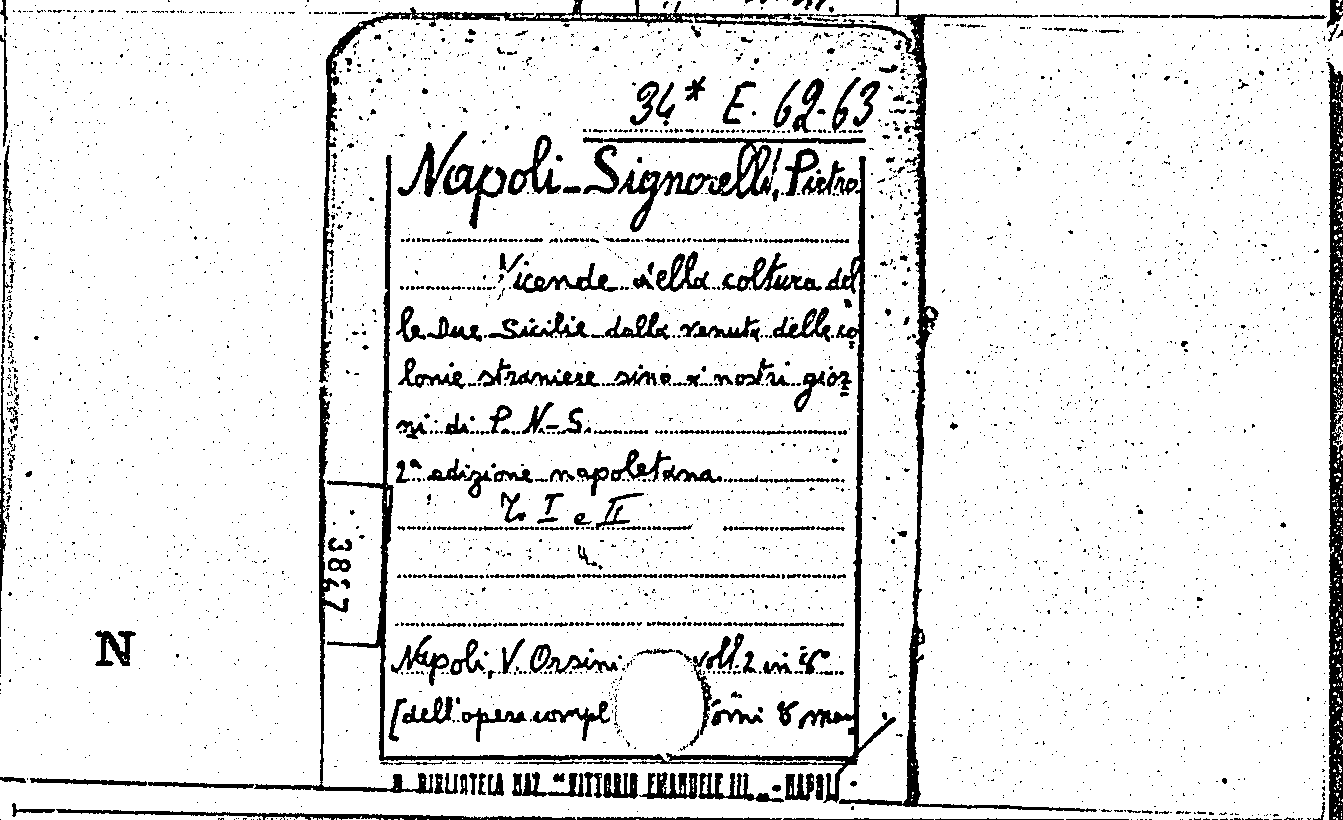 34* E. 62-63
Napoli-Signorelli, Pietro
Vicende della coltura del
le Due Sicilie dalla venuta delle co
lonie straniere sino a' nostri gior
ni di P. N-S.
2ª edizione napoletana.
T. I e II
3867
N
Napoli, V. Orsini voll. 2 in 8°
[dell'opera compl tomi 8 man
R. BIBLIOTECA NAZ. "VITTORIO EMANUELE III" - NAPOLI